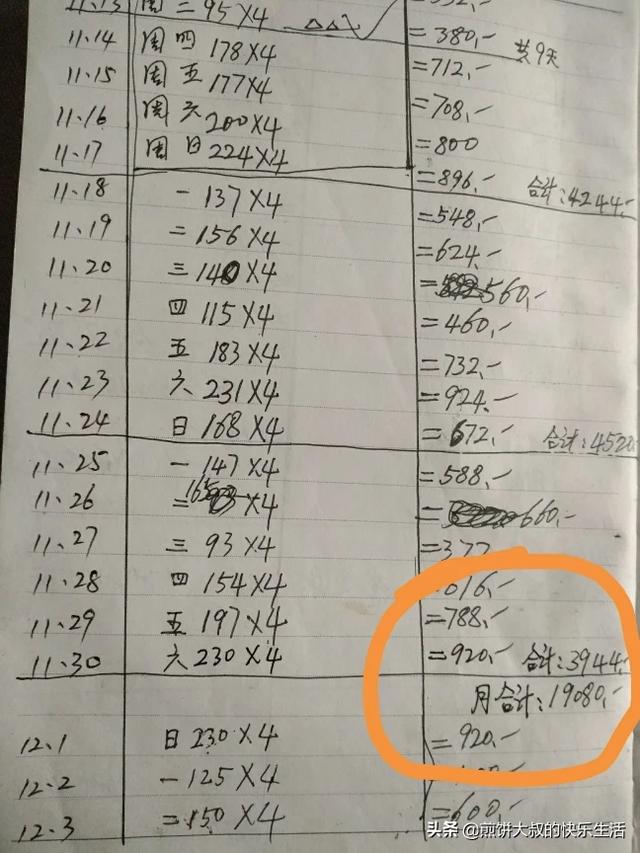 11.13 周 95X4 =380,- 共9天
11.14 周四 178X4 =712,-
11.15 周五 177X4 =708,-
11.16 周六 200X4 =800
11.17 周日 224X4 =896,- 合计:4244,-
11.18 一 137X4 =548,-
11.19 二 156X4 =624,-
11.20 三 140X4 =560,-
11.21 四 115X4 =460,-
11.22 五 183X4 =732,-
11.23 六 231X4 =924,-
11.24 日 168X4 =672,- 合计:4520,-
11.25 一 147X4 =588,-
11.26 二 165X4 =660,-
11.27 三 93X4
11.28 四 154X4 616,-
11.29 五 197X4 =788,-
11.30 六 230X4 =920,- 合计:3944,-
月合计:19080,-
12.1 日 230X4 =920,-
12.2 一 125X4
12.3 二 150X4 =600,-
头条 @煎饼大叔的快乐生活